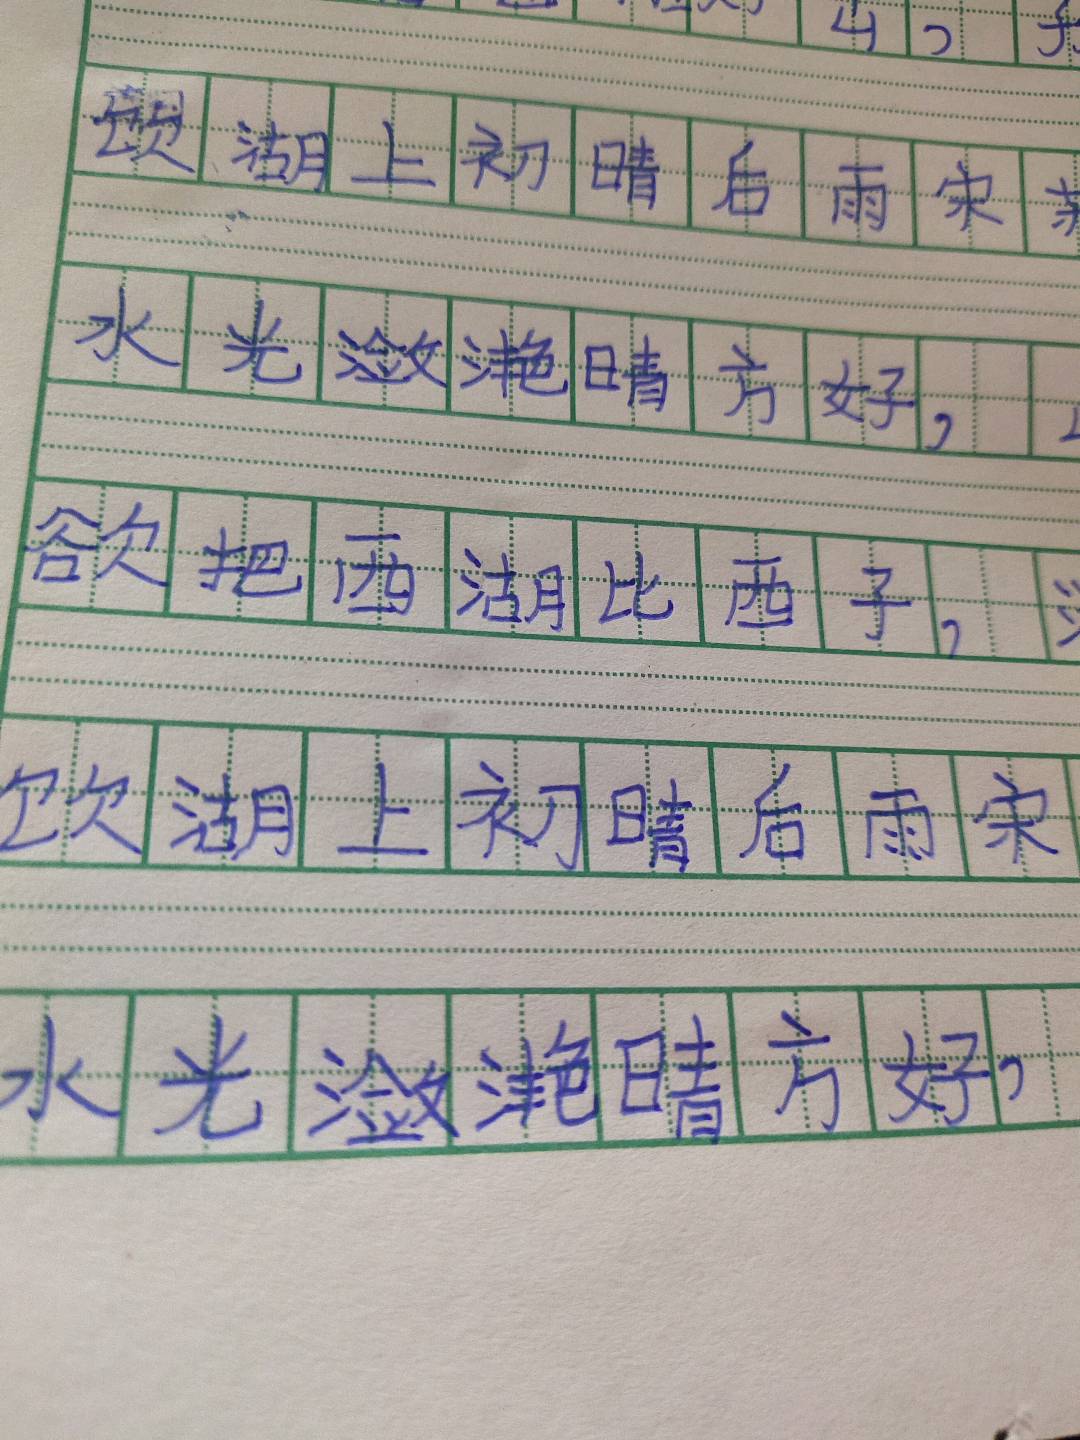 饮湖上初晴后雨宋
水光潋滟晴方好，
欲把西湖比西子，
饮湖上初晴后雨宋
水光潋滟晴方好，